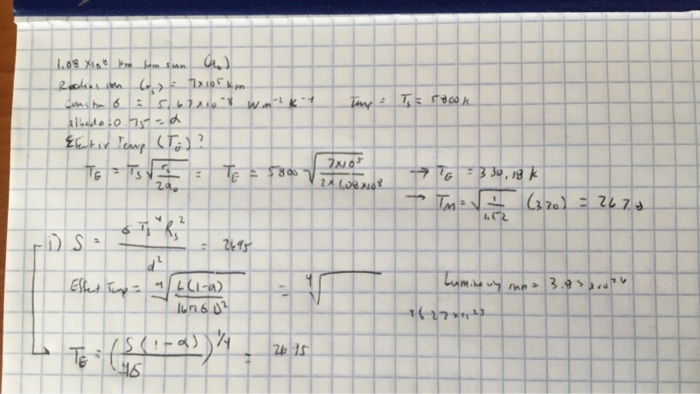 1.08 x10⁸ km from sun (a₀)
Radius sun (rₛ) = 7x10⁵ km
Constan σ = 5.67x10⁻⁸ W m⁻² K⁻⁴ Temp = Tₛ = 5800k
albedo = 0.75 = α
Effectiv Temp (T_E) ?
T_E = Tₛ √(rₛ / 2a₀) = T_E = 5800 √(7x10⁵ / 2x1.08x10⁸) → T_E = 330.18 k
→ T_M = √(1 / 1.52) (330) = 267.
i) S = σ Tₛ⁴ Rₛ² / d² = 2695
Effect Temp = ⁴√(L(1-a) / 16πσ D²) = ⁴√ Luminosity sun =
T_E = (S(1-α) / 4σ)^1/4 =